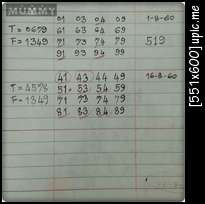 MUMMY
01 03 04 09 1-8-60
T = 0679 61 63 64 69
F = 1349 71 73 74 79 519
91 93 94 99
41 43 44 49 16-8-60
T = 4578 51 53 54 59
F = 1349 71 73 74 79
81 83 84 89
[551x600] upic.me